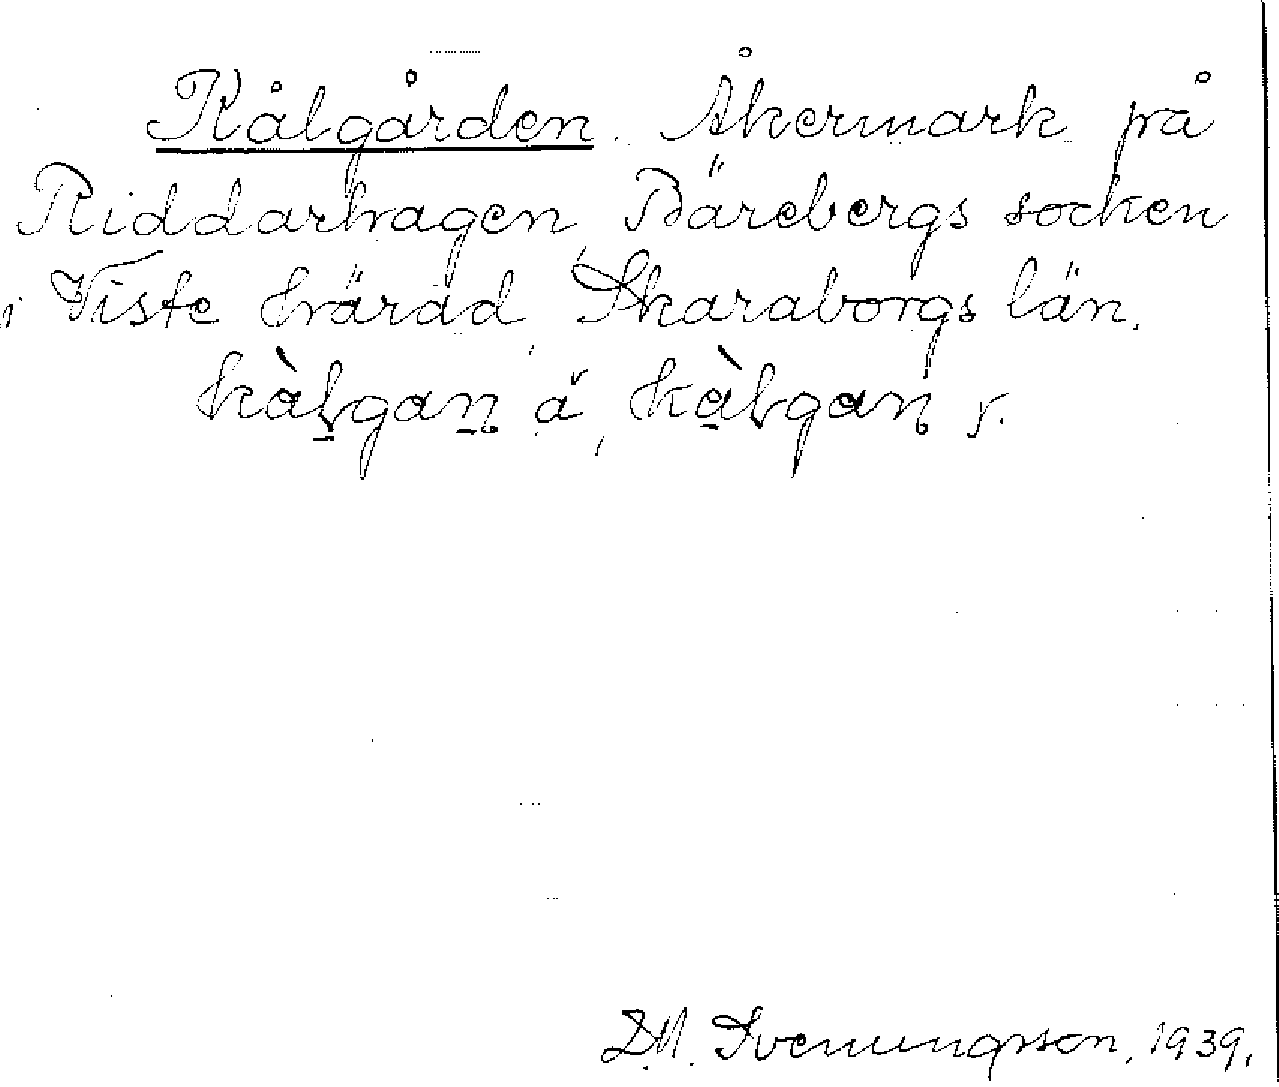 Kålgården. Åkermark på
Riddarhagen, Bärebergs socken
i Viste härad, Skaraborgs län.
å, y.
D.M. Svenungsson, 1939.